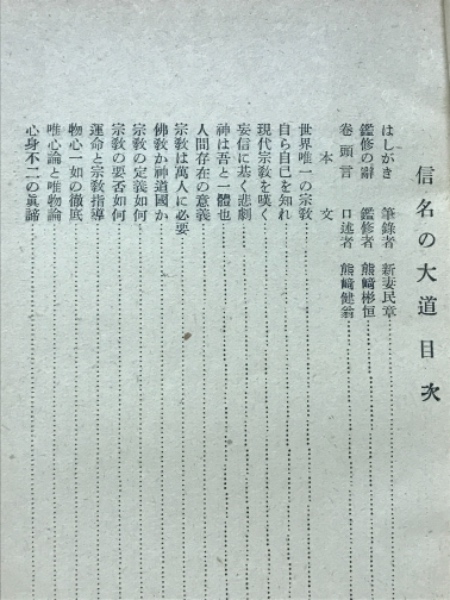 信名の大道 目次
はしがき 筆錄者 新妻民章
鑑修の辭 鑑修者 熊﨑彬恒
卷頭言 口述者 熊﨑健翁
本文
世界唯一の宗敎
自ら自己を知れ
現代宗敎を嘆く
妄信に基く悲劇
神は吾と一體也
人間存在の意義
宗敎は萬人に必要
佛敎か神道國か
宗敎の定義如何
宗敎の要否如何
運命と宗敎指導
物心一如の徹底
唯心論と唯物論
心身不二の眞諦